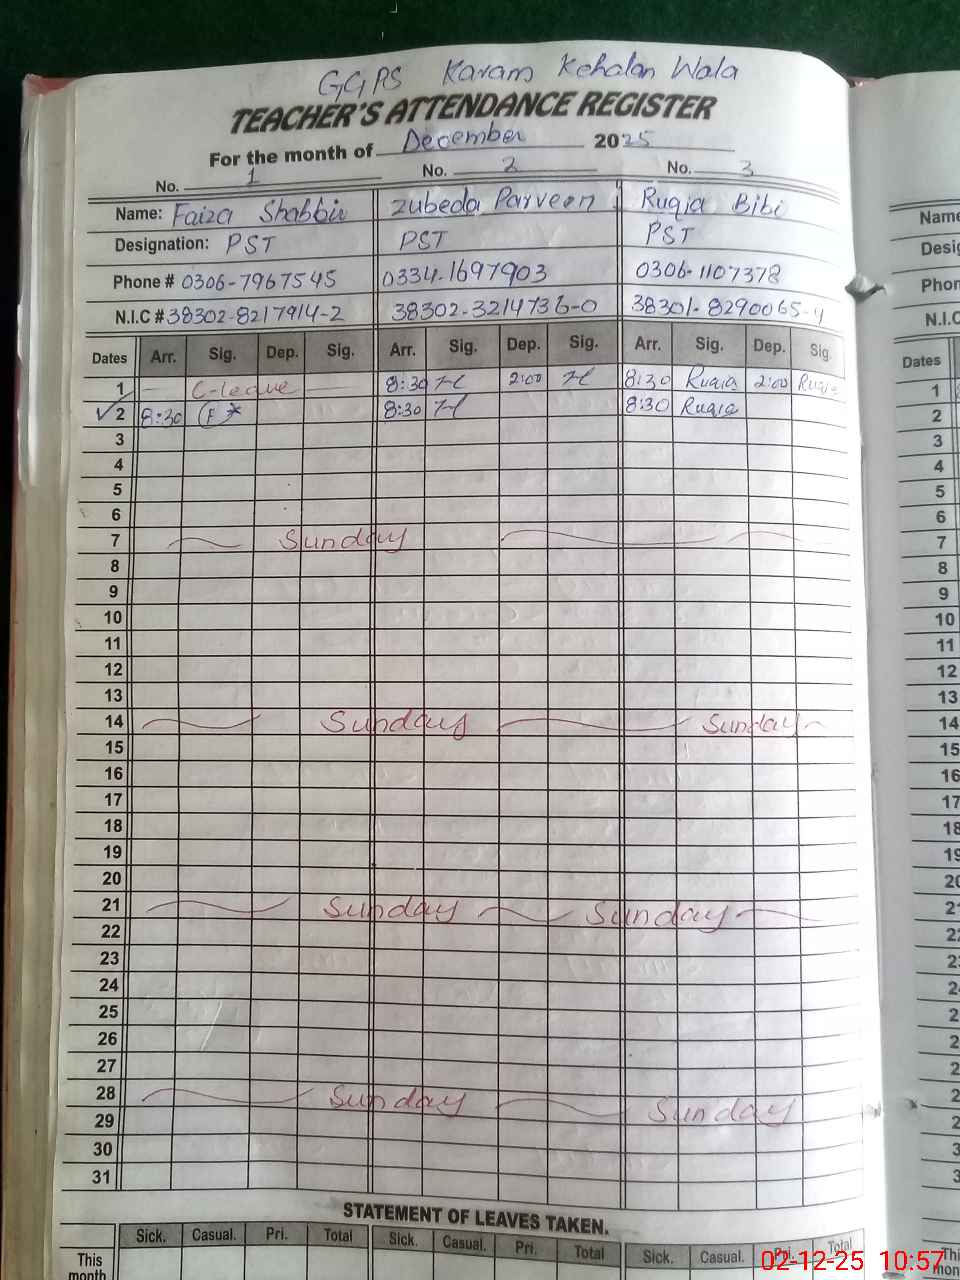 GGPS Karam Kehalan Wala
TEACHER'S ATTENDANCE REGISTER
For the month of December 2025
No. 1 No. 2 No. 3
Name: Faiza Shabbir Zubeda Parveen Ruqia Bibi
Designation: PST PST PST
Phone # 0306-7967545 0334-1697903 0306-1107378
N.I.C # 38302-8217914-2 38302-3214736-0 38301-8290065-4
Dates Arr. Sig. Dep. Sig. Arr. Sig. Dep. Sig. Arr. Sig. Dep. Sig.
1 C-leave 8:30 2:00 8:30 Ruqia 2:00 Ruqia
2 8:30 8:30 8:30 Ruqia
3
4
5
6
7 Sunday
8
9
10
11
12
13
14 Sunday Sunday
15
16
17
18
19
20
21 Sunday Sunday
22
23
24
25
26
27
28 Sunday Sunday
29
30
31
STATEMENT OF LEAVES TAKEN.
Sick. Casual. Pri. Total Sick. Casual. Pri. Total Sick. Casual. Pri. Total
This
month
Name
Phon
N.I.C
Dates
1
2
3
4
5
6
7
8
9
10
11
12
13
14
15
16
17
18
02-12-25 10:57